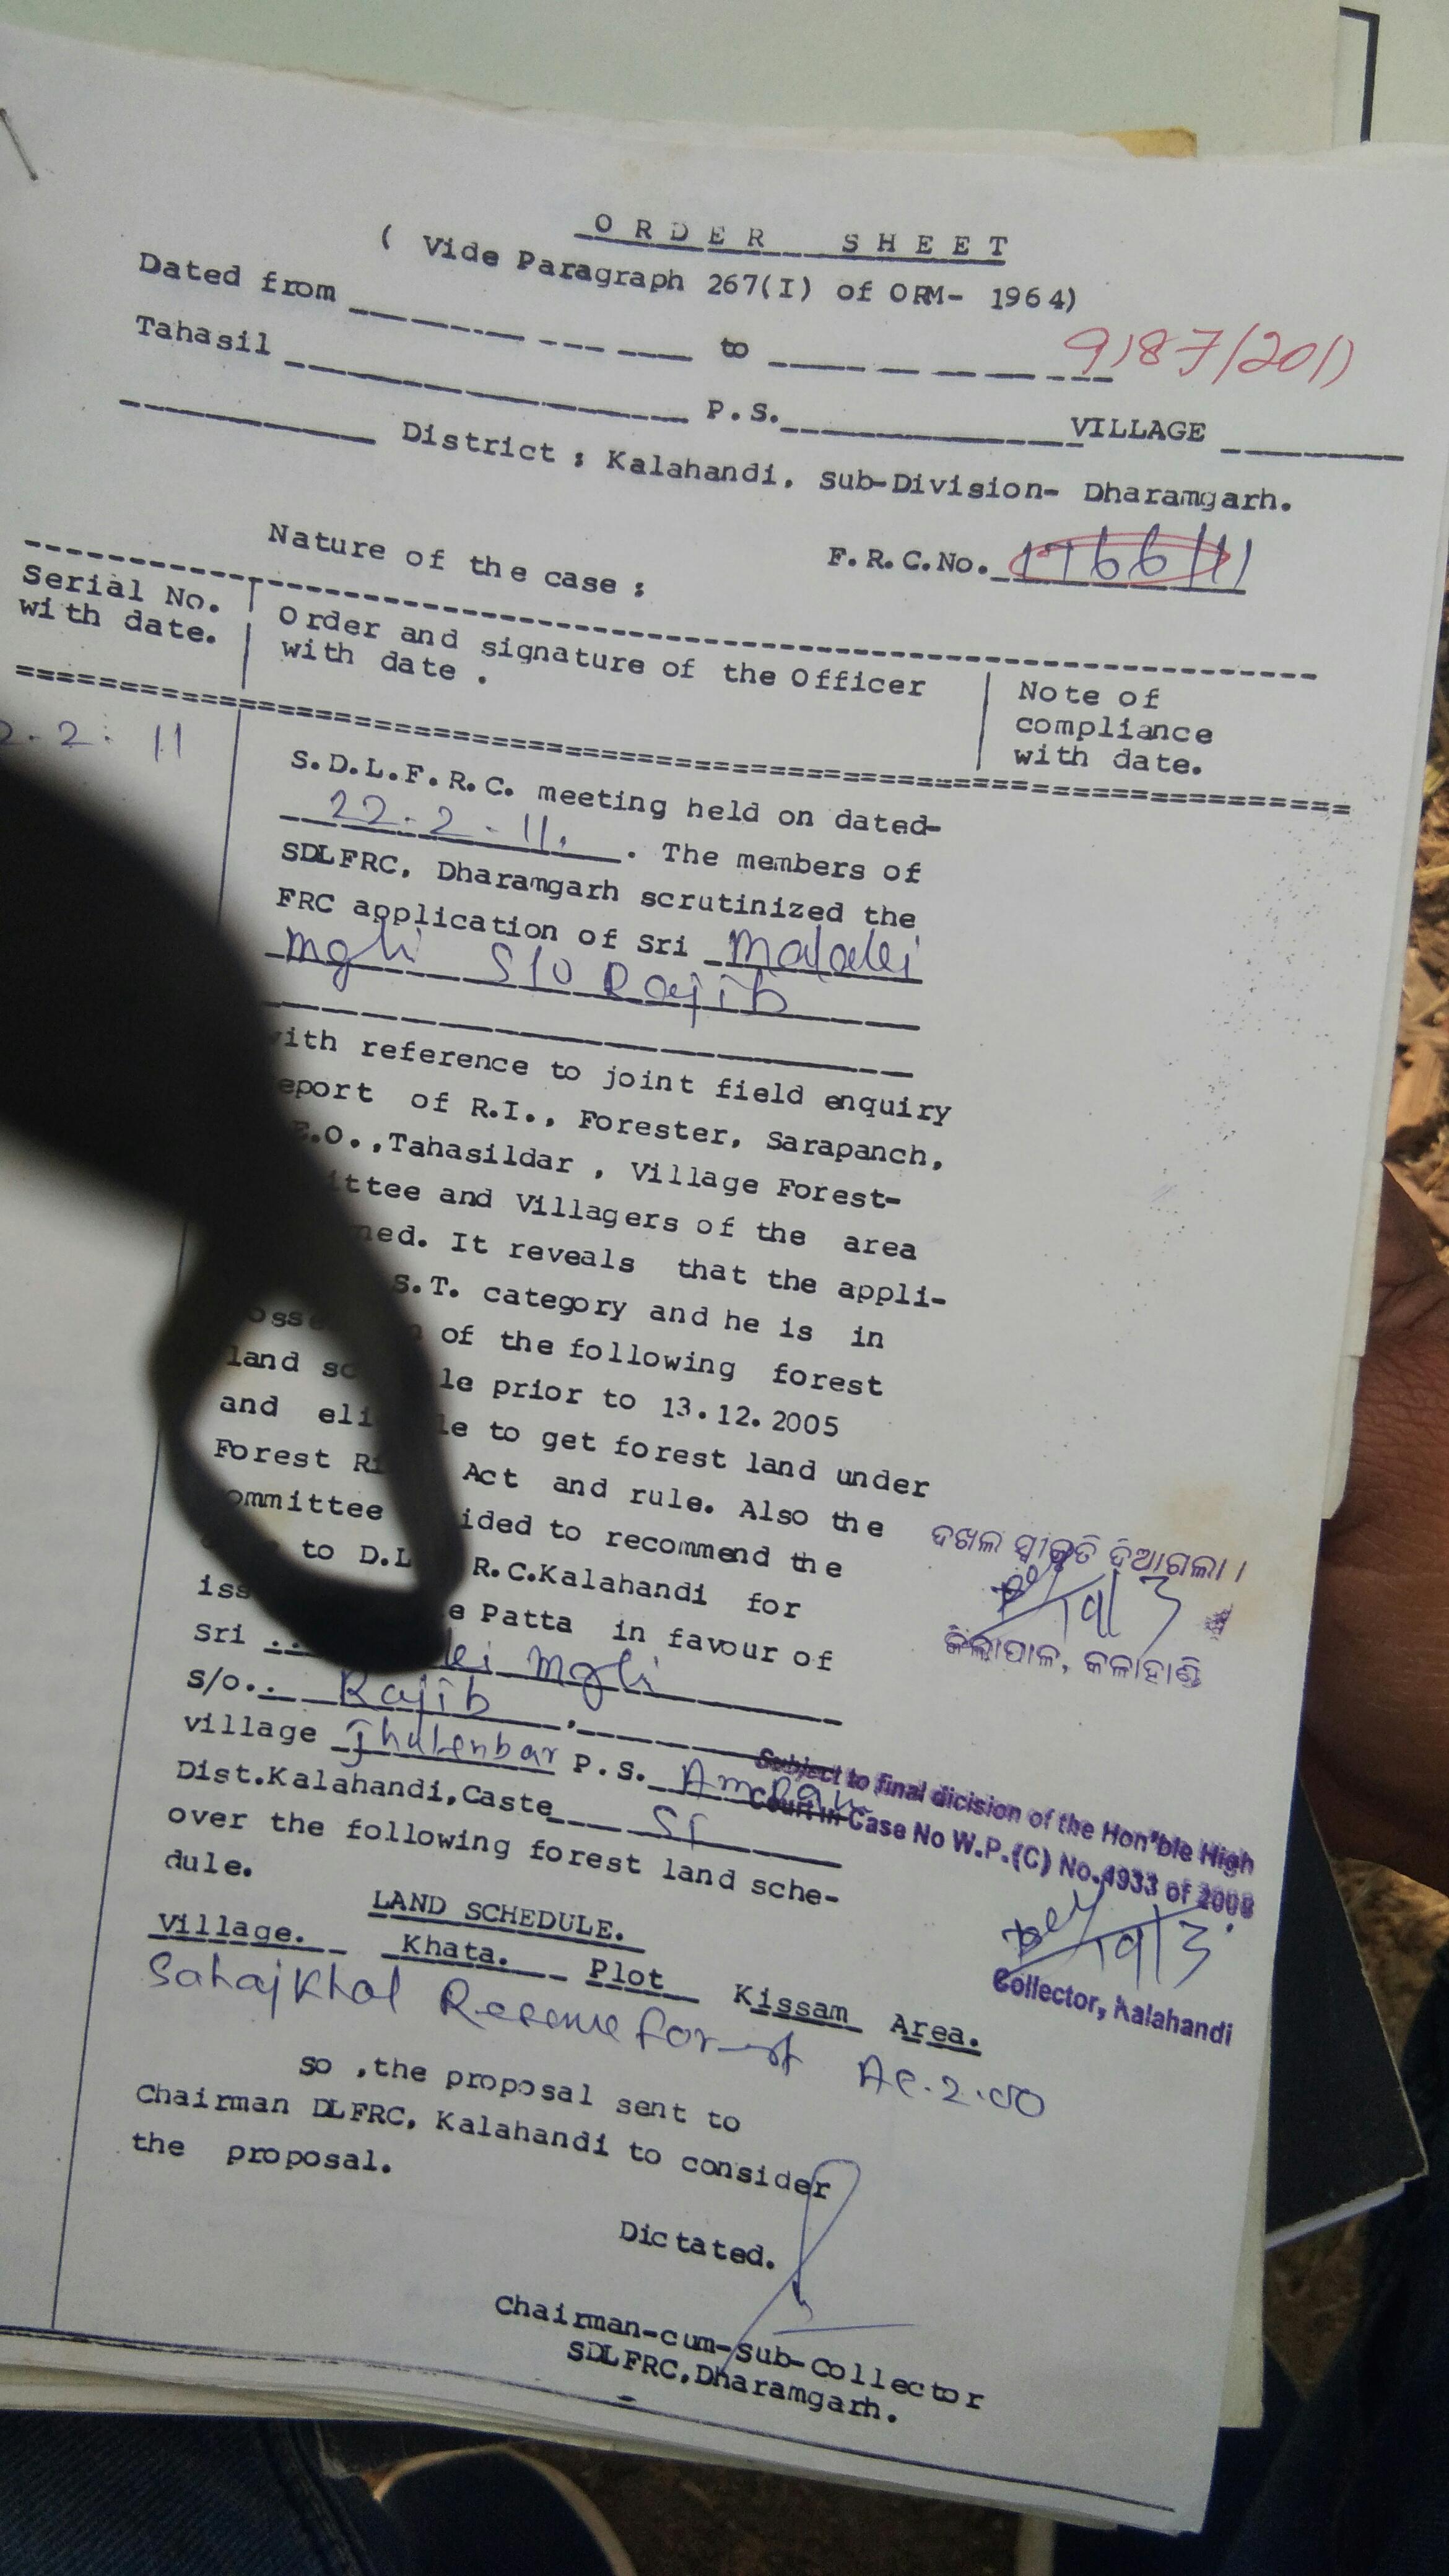 ORDER SHEET
( Vide Paragraph 267(I) of ORM- 1964)
Dated from to
9187/2011
Tahasil P.S. VILLAGE
District ; Kalahandi, Sub-Division- Dharamgarh.
Nature of the case ; F.R.C.No. 1766/11
Serial No. with date.
Order and signature of the Officer with date .
Note of compliance with date.
2.2.11
S.D.L.F.R.C. meeting held on dated-
22.2.11. . The members of
SDLFRC, Dharamgarh scrutinized the
FRC application of Sri
S/o Rajib
with reference to joint field enquiry
eport of R.I., Forester, Sarapanch,
E.O.,Tahasildar , Village Forest-
ittee and Villagers of the area
ned. It reveals that the appli-
S.T. category and he is in
of the following forest
land le prior to 13.12.2005
and eli le to get forest land under
Forest Ri Act and rule. Also the
ommittee ided to recommend the
to D.L R.C.Kalahandi for
iss e Patta in favour of
Sri
S/o.. Rajib
village Jhulenbar P.S. Ampani
Dist.Kalahandi,Caste ST
over the following forest land sche-
dule.
LAND SCHEDULE.
Village. Khata. Plot Kissam Area.
Sahajkhol Reserve forest Ac.2.00
so ,the proposal sent to
Chairman DLFRC, Kalahandi to consider
the proposal.
Dictated.
Chairman-cum-Sub-Collector
SDLFRC,Dharamgarh.
ଦଖଲ ସ୍ୱୀକୃତି ଦିଆଗଲା।
ଜିଲାପାଳ, କଳାହାଣ୍ଡି
Subject to final dicision of the Hon'ble High
Court in Case No W.P.(C) No.4933 of 2008
Collector, Kalahandi